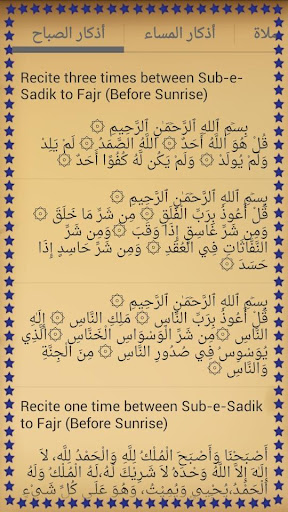 أذكار الصباح أذكار المساء صلاة
Recite three times between Sub-e-
Sadik to Fajr (Before Sunrise)
بِسْمِ ٱللهِ ٱلرَّحْمَنِ ٱلرَّحِيمِ ۞
قُلْ هُوَ اللَّهُ أَحَدٌ ۞ اللَّهُ الصَّمَدُ ۞ لَمْ يَلِدْ
وَلَمْ يُولَدْ ۞ وَلَمْ يَكُن لَّهُ كُفُوًا أَحَدٌ ۞
بِسْمِ ٱللهِ ٱلرَّحْمَنِ ٱلرَّحِيمِ ۞
قُلْ أَعُوذُ بِرَبِّ الْفَلَقِ ۞ مِن شَرِّ مَا خَلَقَ
۞ وَمِن شَرِّ غَاسِقٍ إِذَا وَقَبَ ۞ وَمِن شَرِّ
النَّفَّاثَاتِ فِي الْعُقَدِ ۞ وَمِن شَرِّ حَاسِدٍ إِذَا
حَسَدَ ۞
بِسْمِ ٱللهِ ٱلرَّحْمَنِ ٱلرَّحِيمِ ۞
قُلْ أَعُوذُ بِرَبِّ النَّاسِ ۞ مَلِكِ النَّاسِ ۞ إِلَهِ
النَّاسِ ۞ مِن شَرِّ الْوَسْوَاسِ الْخَنَّاسِ ۞الَّذِي
يُوَسْوِسُ فِي صُدُورِ النَّاسِ ۞ مِنَ الْجِنَّةِ
وَالنَّاسِ ۞
Recite one time between Sub-e-Sadik
to Fajr (Before Sunrise)
أَصْبَحْنَا وَأَصْبَحَ الْمُلْكُ لِلَّهِ وَالْحَمْدُ لِلَّهِ، لَا
إِلَهَ إِلاَّ اللَّهُ وَحْدَهُ لاَ شَرِيكَ لَهُ، لَهُ الْمُلْكُ وَلَهُ
الْحَمْدُ،يُحْيِي وَيُمِيتُ، وَهُوَ عَلَى كُلِّ شَيْءٍ